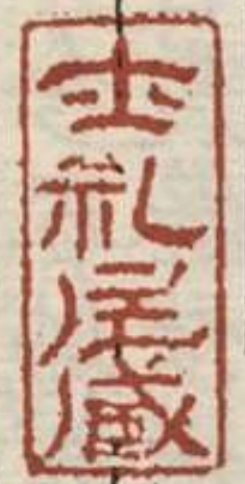 士礼居藏